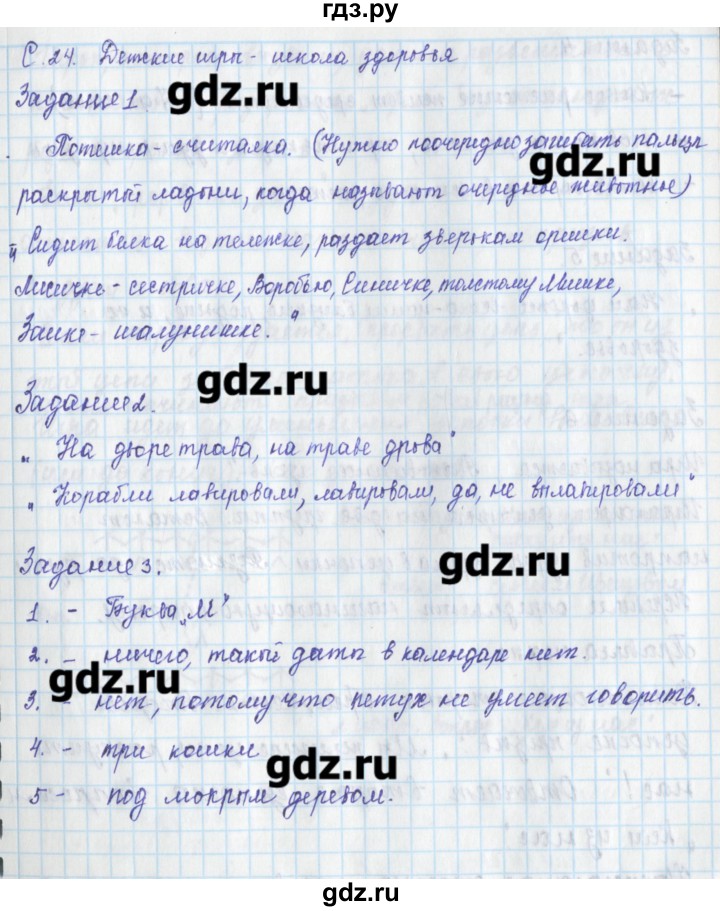 гдз.ру
С. 24. Детские игры - школа здоровья
Задание 1.
gdz.ru
Потешка - считалка. (Нужно поочередно загибать пальцы
gdz.ru
раскрытой ладони, когда называют очередное животное)
"Сидит белка на тележке, раздает зверькам орешки.
Лисичке - сестричке, Воробью, Синичке, толстому Мишке,
Заике - шалунишке."
gdz.ru
Задание 2.
"На дворе трава, на траве дрова"
"Корабли лавировали, лавировали, да, не вылавировали"
Задание 3.
gdz.ru
1. - Буква "М"
2. - ничего, такой даты в календаре нет.
gdz.ru
3. - нет, потому что петух не умеет говорить.
4. - три кошки
gdz.ru
5 - под мокрым деревом.
gdz.ru